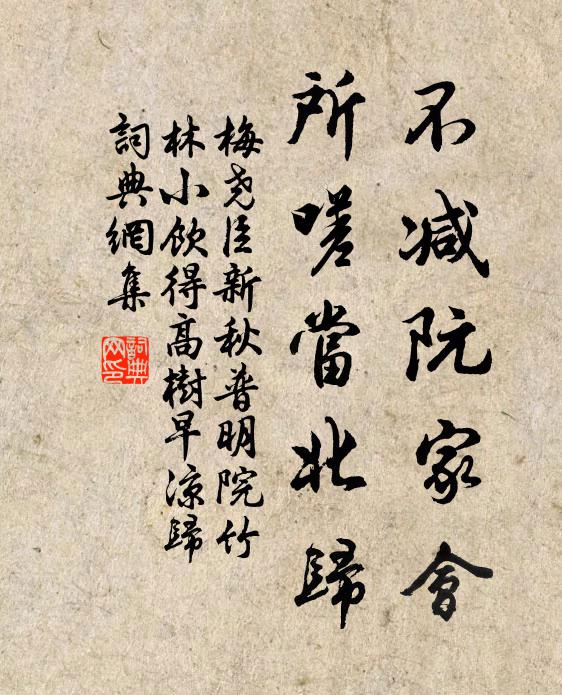 不減阮家會
所嗟當北歸
梅尧臣新秋普明院竹
林小飲得高樹早涼歸
詞典網集
詞典網印